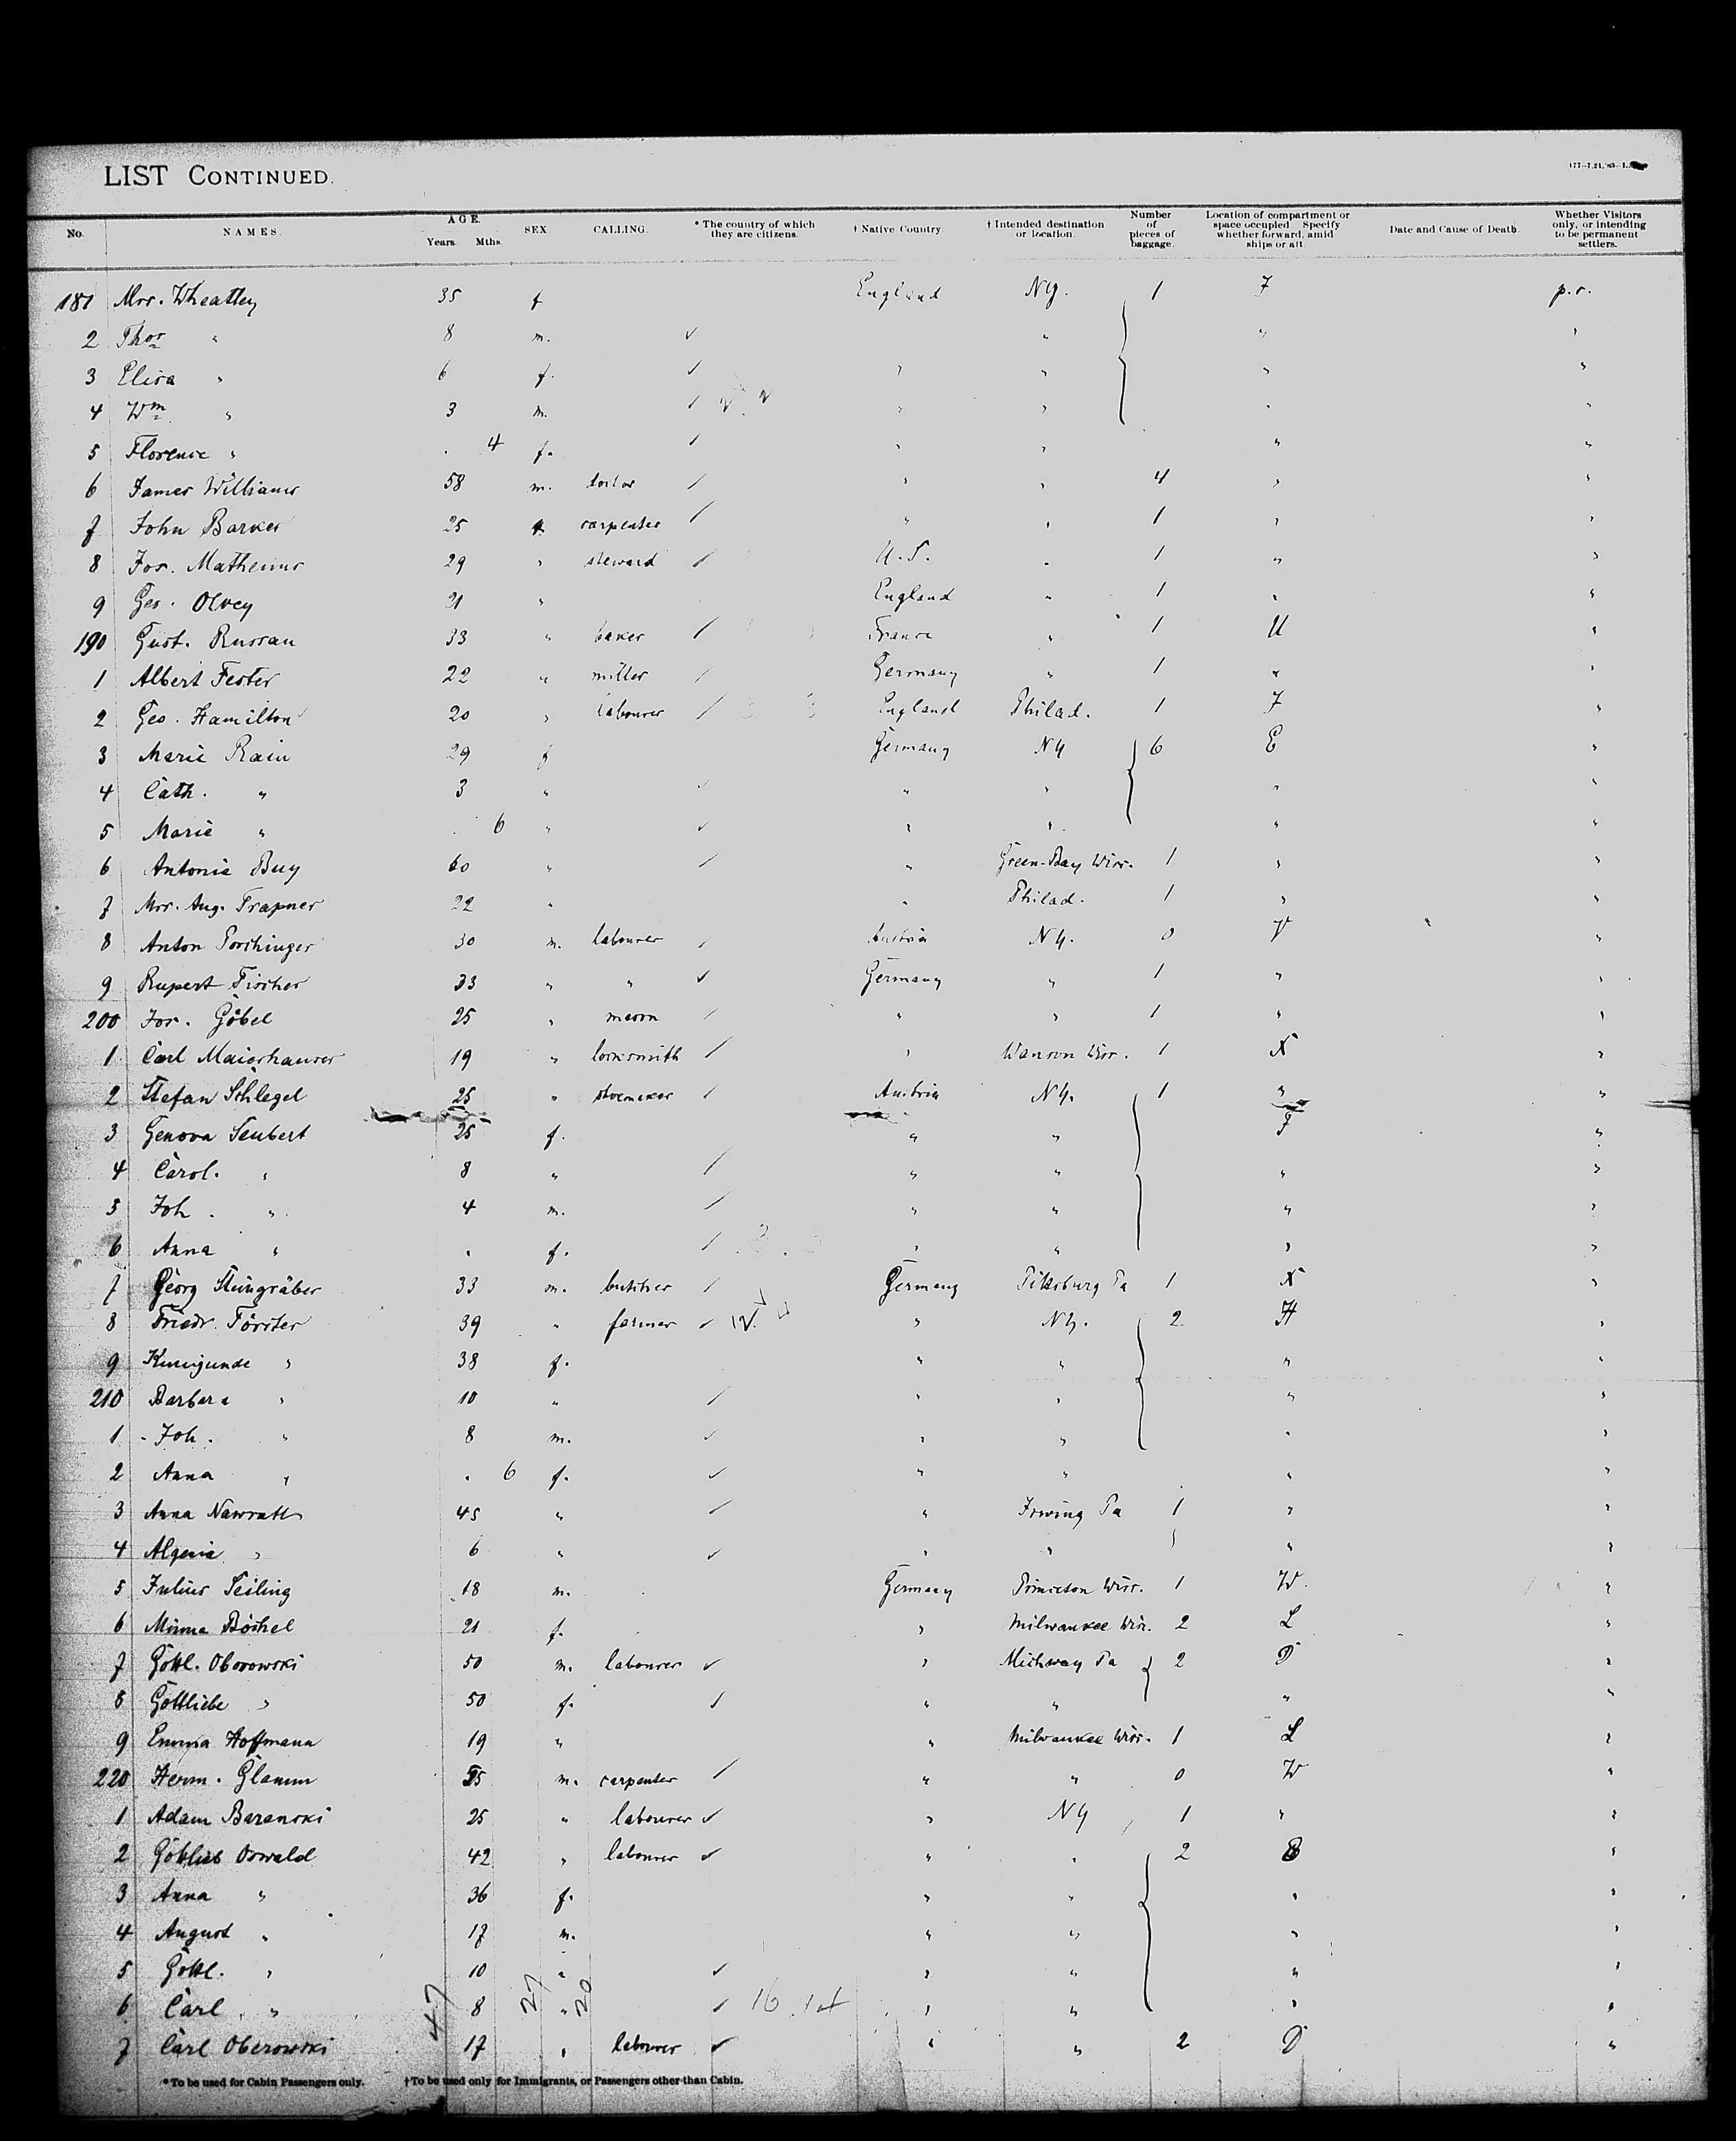 LIST CONTINUED.
No. NAMES. AGE. Years. Mths. SEX CALLING. * The country of which they are citizens. † Native Country † Intended destination or location. Number of pieces of baggage. Location of compartment or space occupied Specify whether forward, amid ships or aft Date and Cause of Death. Whether Visitors only, or intending to be permanent settlers.
181 Mrs. Wheatley 35 f England N.Y. 1 F p.s.
2 Thos " 8 m. ✓ " " "
3 Eliza " 6 f. ✓ " " " "
4 Wm " 3 m. ✓ " " " "
5 Florence " . 4 f. ✓ " " " "
6 James Williams 58 m. ✓ " " 4 " "
7 John Barker 25 carpenter ✓ " " 1 " "
8 Jos. Mathews 29 " steward ✓ U.S. " 1 " "
9 Geo. Olvey 21 " England " 1 " "
190 Gust. Russau 33 " baker ✓ France " 1 U "
1 Albert Fester 22 " miller ✓ Germany " 1 " "
2 Geo. Hamilton 20 " labourer ✓ England Philad. 1 F "
3 Marie Rain 29 f Germany NY 6 E "
4 Cath. " 3 " ✓ " " " "
5 Marie " . 6 " ✓ " " " "
6 Antonie Buy 60 " ✓ " Green-Bay Wiss. 1 " "
7 Mrs. Aug. Trapner 22 " " Philad. 1 " "
8 Anton Poschinger 30 m. labourer ✓ Austria N.Y. 0 V "
9 Rupert Fischer 33 " " ✓ Germany " 1 " "
200 Jos. Göbel 25 " mason ✓ " " 1 " "
1 Carl Maierhauser 19 " locksmith ✓ " Wausau Wiss. 1 X "
2 Stefan Schlegel 25 " shoemaker ✓ Austria N.Y. 1 " "
3 Genova Seubert 25 f. " " F "
4 Carol. " 8 " ✓ " " " "
5 Joh. " 4 m. ✓ " " " "
6 Anna " . f. ✓ " " " "
7 Georg Steingräber 33 m. butcher ✓ Germany Pittsburg Pa 1 X "
8 Friedr. Förster 39 " farmer ✓ " N.Y. 2 H "
9 Kunigunde " 38 f. " " " "
210 Barbara " 10 " ✓ " " " "
1 Joh. " 8 m. ✓ " " " "
2 Anna " . 6 f. ✓ " " " "
3 Anna Nawrath 45 " ✓ " Irwing Pa 1 " "
4 " 6 " ✓ " " " "
5 Julius Seiling 18 m. Germany Princeton Wiss. 1 W. "
6 Minna Böchel 21 f. " Milwaukee Wis. 2 L "
7 Gottl. Oborowski 50 m. labourer ✓ " Michway Pa 2 D "
8 Gottliebe " 50 f. ✓ " " " "
9 Emma Hoffmann 19 " " Milwaukee Wiss. 1 L "
220 Herm. Glamm m. carpenter ✓ " " 0 W "
1 Adam Baranski 25 " labourer ✓ " NY 1 " "
2 Gottlieb Oswald 42 " labourer ✓ " " 2 "
3 Anna " 36 f. " " " "
4 August " 17 m. " " " "
5 Gottl. " 10 " ✓ " " " "
6 Carl " 8 " ✓ " " " "
7 Carl Oberowski 17 " labourer ✓ " " 2 D "
47 27 20
* To be used for Cabin Passengers only. † To be used only for Immigrants, or Passengers other than Cabin.